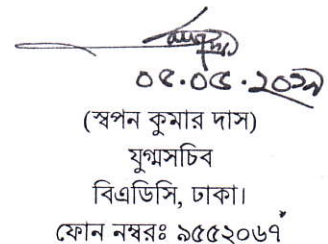 ০৫.০৫.২০১৯
(স্বপন কুমার দাস)
যুগ্মসচিব
বিএডিসি, ঢাকা।
ফোন নম্বরঃ ৯৫৫২০৬৭